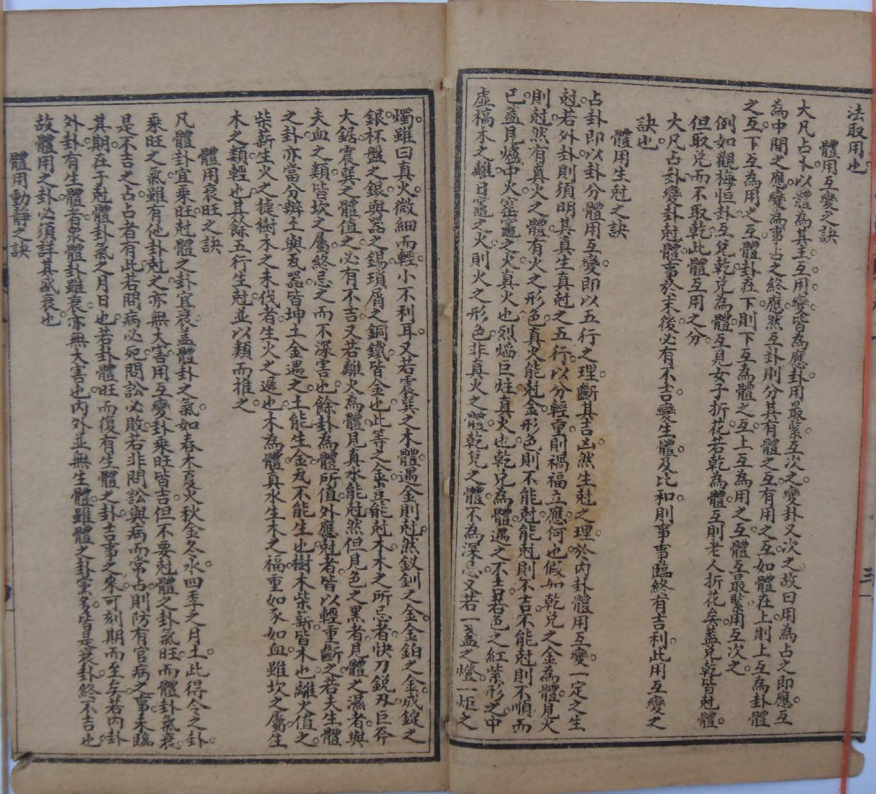 法取用也
體用互變之訣
大凡占卜以體為其主互用變皆為應卦用最緊互次之變卦又次之故曰用為占之即應互
為中間之應變為事占之終應然互卦則分其有體之互有用之互如體在上則上互為卦體
之互下互為用之互體卦在下則下互為體之互上互為用之互體互最緊用互次之
例如觀梅恒卦互兌乾兌為體互見女子折花若乾為體互則老人折花矣蓋兌乾皆尅體
但取兌而不取乾此體互用之分
大凡占卦變卦尅體事於末後必有不吉變生體及比和則事事臨終有吉利此用互變之
訣也
體用生尅之訣
占卦即以卦分體用互變即以五行之理斷其吉凶然生尅之理於內卦體用互變一定之生
尅若外卦則須明其真生真尅之五行以分輕重則禍福立應何也假如乾兌之金為體見火
則尅然有真火之體有火之形色真火能尅金形色則不能尅能尅則不吉不能尅則不順而
已蓋見爐中火窰竈之火真火也烈焰巨炷真火也乾兌為體遇之不吉若色之紅紫形之中
虛槁木之離日竈之火則火之形色非真火之體乾兌之體不為深忌又若一盞之燈一炬之
燭雖曰真火微細而輕小不利耳又若震巽之木體遇金則尅然釵釧之金金鉑之金成錠之
銀杯盤之銀與器之錫瑣屑之銅鐵皆金也此等之金豈能尅木木之所忌者快刀銳刃巨斧
大鋸震巽之體值之必有不吉又若離火為體見真水能尅然但見色之黑者見體之濕者與
夫血之類皆坎之屬終忌之而不深害也餘卦為體所值外應尅者皆以輕重斷之若夫生體
之卦亦當分辨土與瓦器皆坤土金遇之土能生金瓦不能生也樹木柴薪皆木也離火值之
柴薪生火之捷樹木之未伐者生火之遲也木為體真水生木之福重如豕如血雖坎之屬生
木之類輕也其餘五行生尅並以類而推之
體用衰旺之訣
凡體卦宜乘旺尅體之卦宜衰蓋體卦之氣如春木夏火秋金冬水四季之月土此得令之卦
乘旺之氣雖有他卦尅之亦無大害用互變卦乘旺皆吉但不要尅體之卦氣旺而體卦氣衰
是不吉之占占者有此若問病必死問訟必敗若非問訟與病而常占則防有官病之事未臨
其期在于尅體卦氣之月日也若卦體旺而復有生體之卦吉事之來可刻期而至矣若內卦
外卦有生體者眾體卦雖衰亦無大害也內外並無生體雖體之卦黨多皆是衰卦終不吉也
故體用之卦必須詳其氣衰也
體用動靜之訣